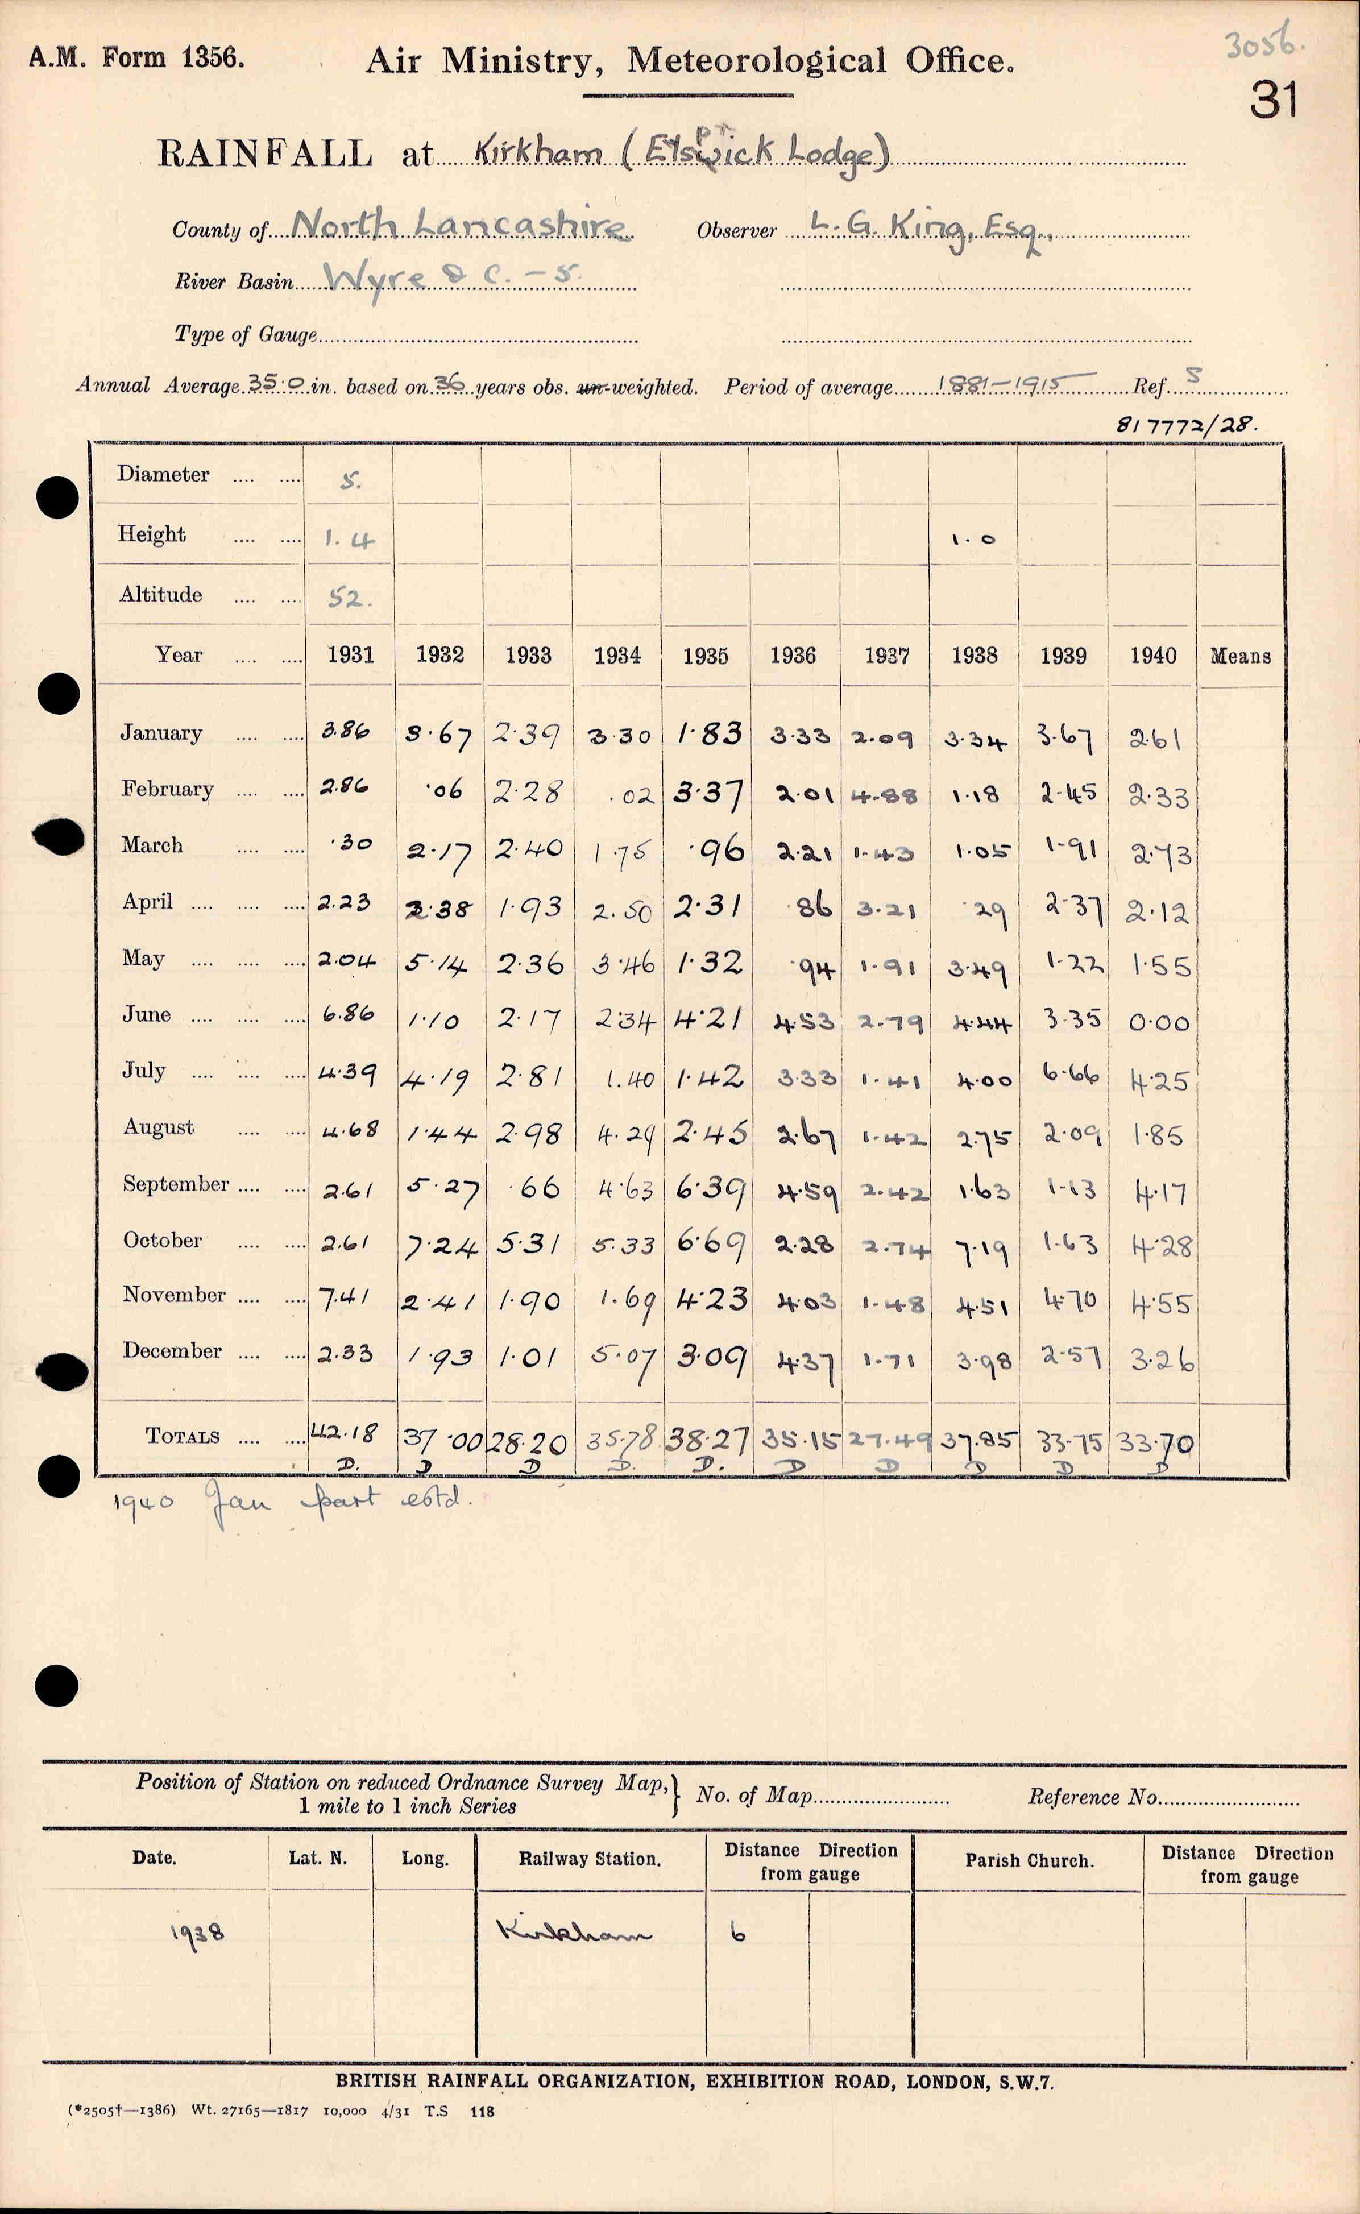 3056.
A.M. Form 1356. Air Ministry, Meteorological Office.
31
RAINFALL at Kirkham (Elswick Lodge)
County of North Lancashire Observer L. G. King, Esq.,
River Basin Wyre & C. - 5.
Type of Gauge
Annual Average 35.0 in. based on 36 years obs. un-weighted. Period of average 1881-1915 Ref. S
817772/28.
Diameter 5.
Height 1.4 1.0
Altitude 52.
Year 1931 1932 1933 1934 1935 1936 1937 1938 1939 1940 Means
January 3.86 3.67 2.39 3.30 1.83 3.33 2.09 3.34 3.67 2.61
February 2.86 .06 2.28 .02 3.37 2.01 4.88 1.18 2.45 2.33
March .30 2.17 2.40 1.75 .96 2.21 1.43 1.05 1.91 2.73
April 2.23 2.38 1.93 2.50 2.31 .86 3.21 .29 2.37 2.12
May 2.04 5.14 2.36 3.46 1.32 .94 1.91 3.49 1.22 1.55
June 6.86 1.10 2.17 2.34 4.21 4.53 2.79 4.44 3.35 0.00
July 4.39 4.19 2.81 1.40 1.42 3.33 1.41 4.00 6.66 4.25
August 4.68 1.44 2.98 4.29 2.45 2.67 1.42 2.75 2.09 1.85
September 2.61 5.27 .66 4.63 6.39 4.59 2.42 1.63 1.13 4.17
October 2.61 7.24 5.31 5.33 6.69 2.28 2.74 7.19 1.63 4.28
November 7.41 2.41 1.90 1.69 4.23 4.03 1.48 4.51 4.70 4.55
December 2.33 1.93 1.01 5.07 3.09 4.37 1.71 3.98 2.57 3.26
TOTALS 42.18 37.00 28.20 35.78 38.27 35.15 27.49 37.85 33.75 33.70
D. D D D. D. D D D D D
1940 Jan part estd.
Position of Station on reduced Ordnance Survey Map,} No. of Map Reference No.
1 mile to 1 inch Series
Date. Lat. N. Long. Railway Station. Distance Direction from gauge Parish Church. Distance Direction from gauge
1938 Kirkham 6
BRITISH RAINFALL ORGANIZATION, EXHIBITION ROAD, LONDON, S.W.7.
(*2505†—1386) Wt. 27165—1817 10,000 4/31 T.S 118